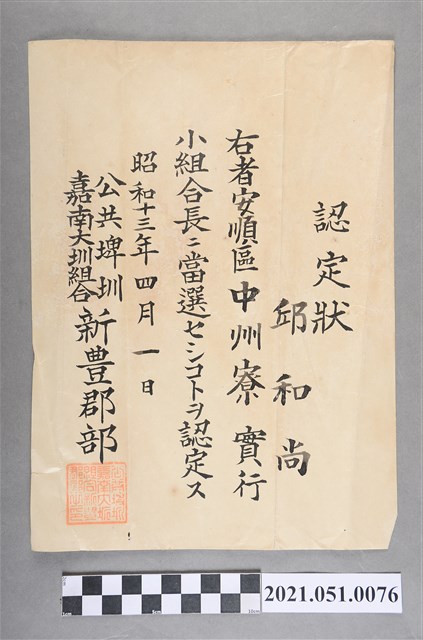 認定狀
邱和尚
右者安順區中州寮實行
小組合長ニ當選セシコトヲ認定ス
昭和十三年四月一日
公共埤圳
嘉南大圳組合新豊郡部
2021.051.0076